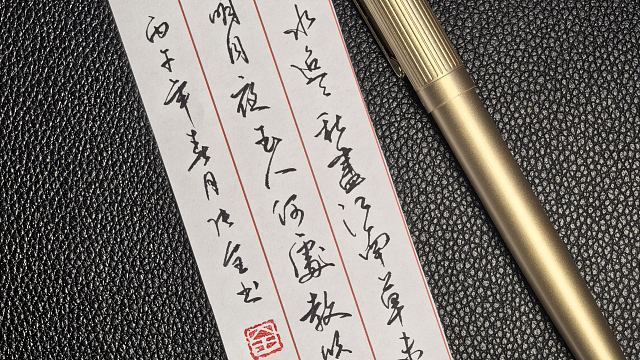 水迢々秋盡江南草未
明月夜玉人何處教吹
丙午年春月书